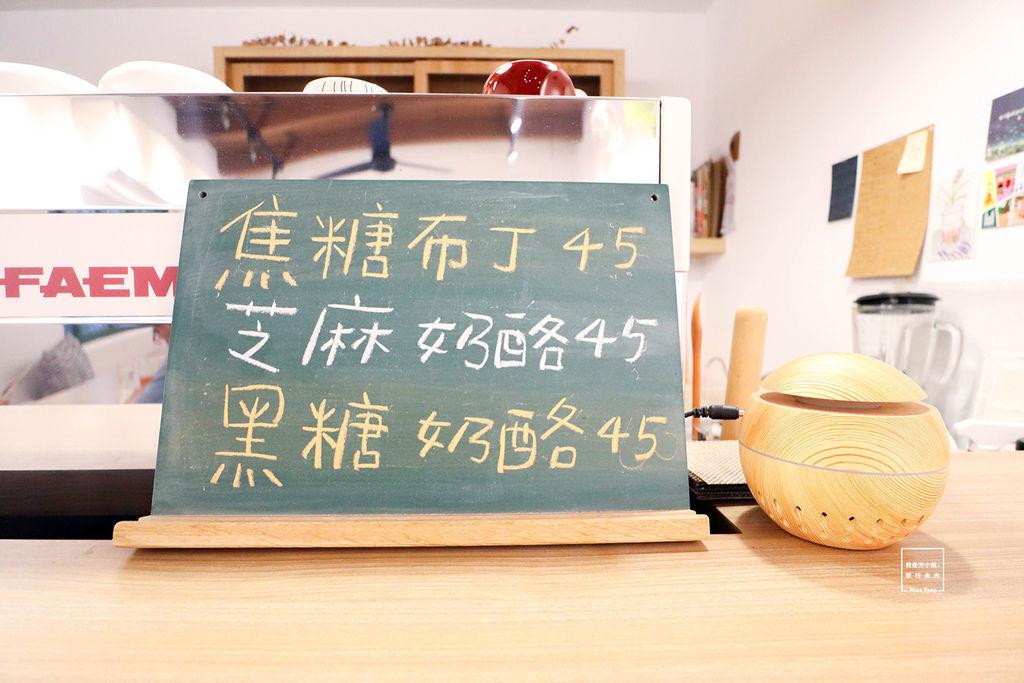 FAEM
焦糖布丁 45
芝麻 奶酪 45
黑糖 奶酪 45
我是方小姐。
旅行食光
Miss Fang